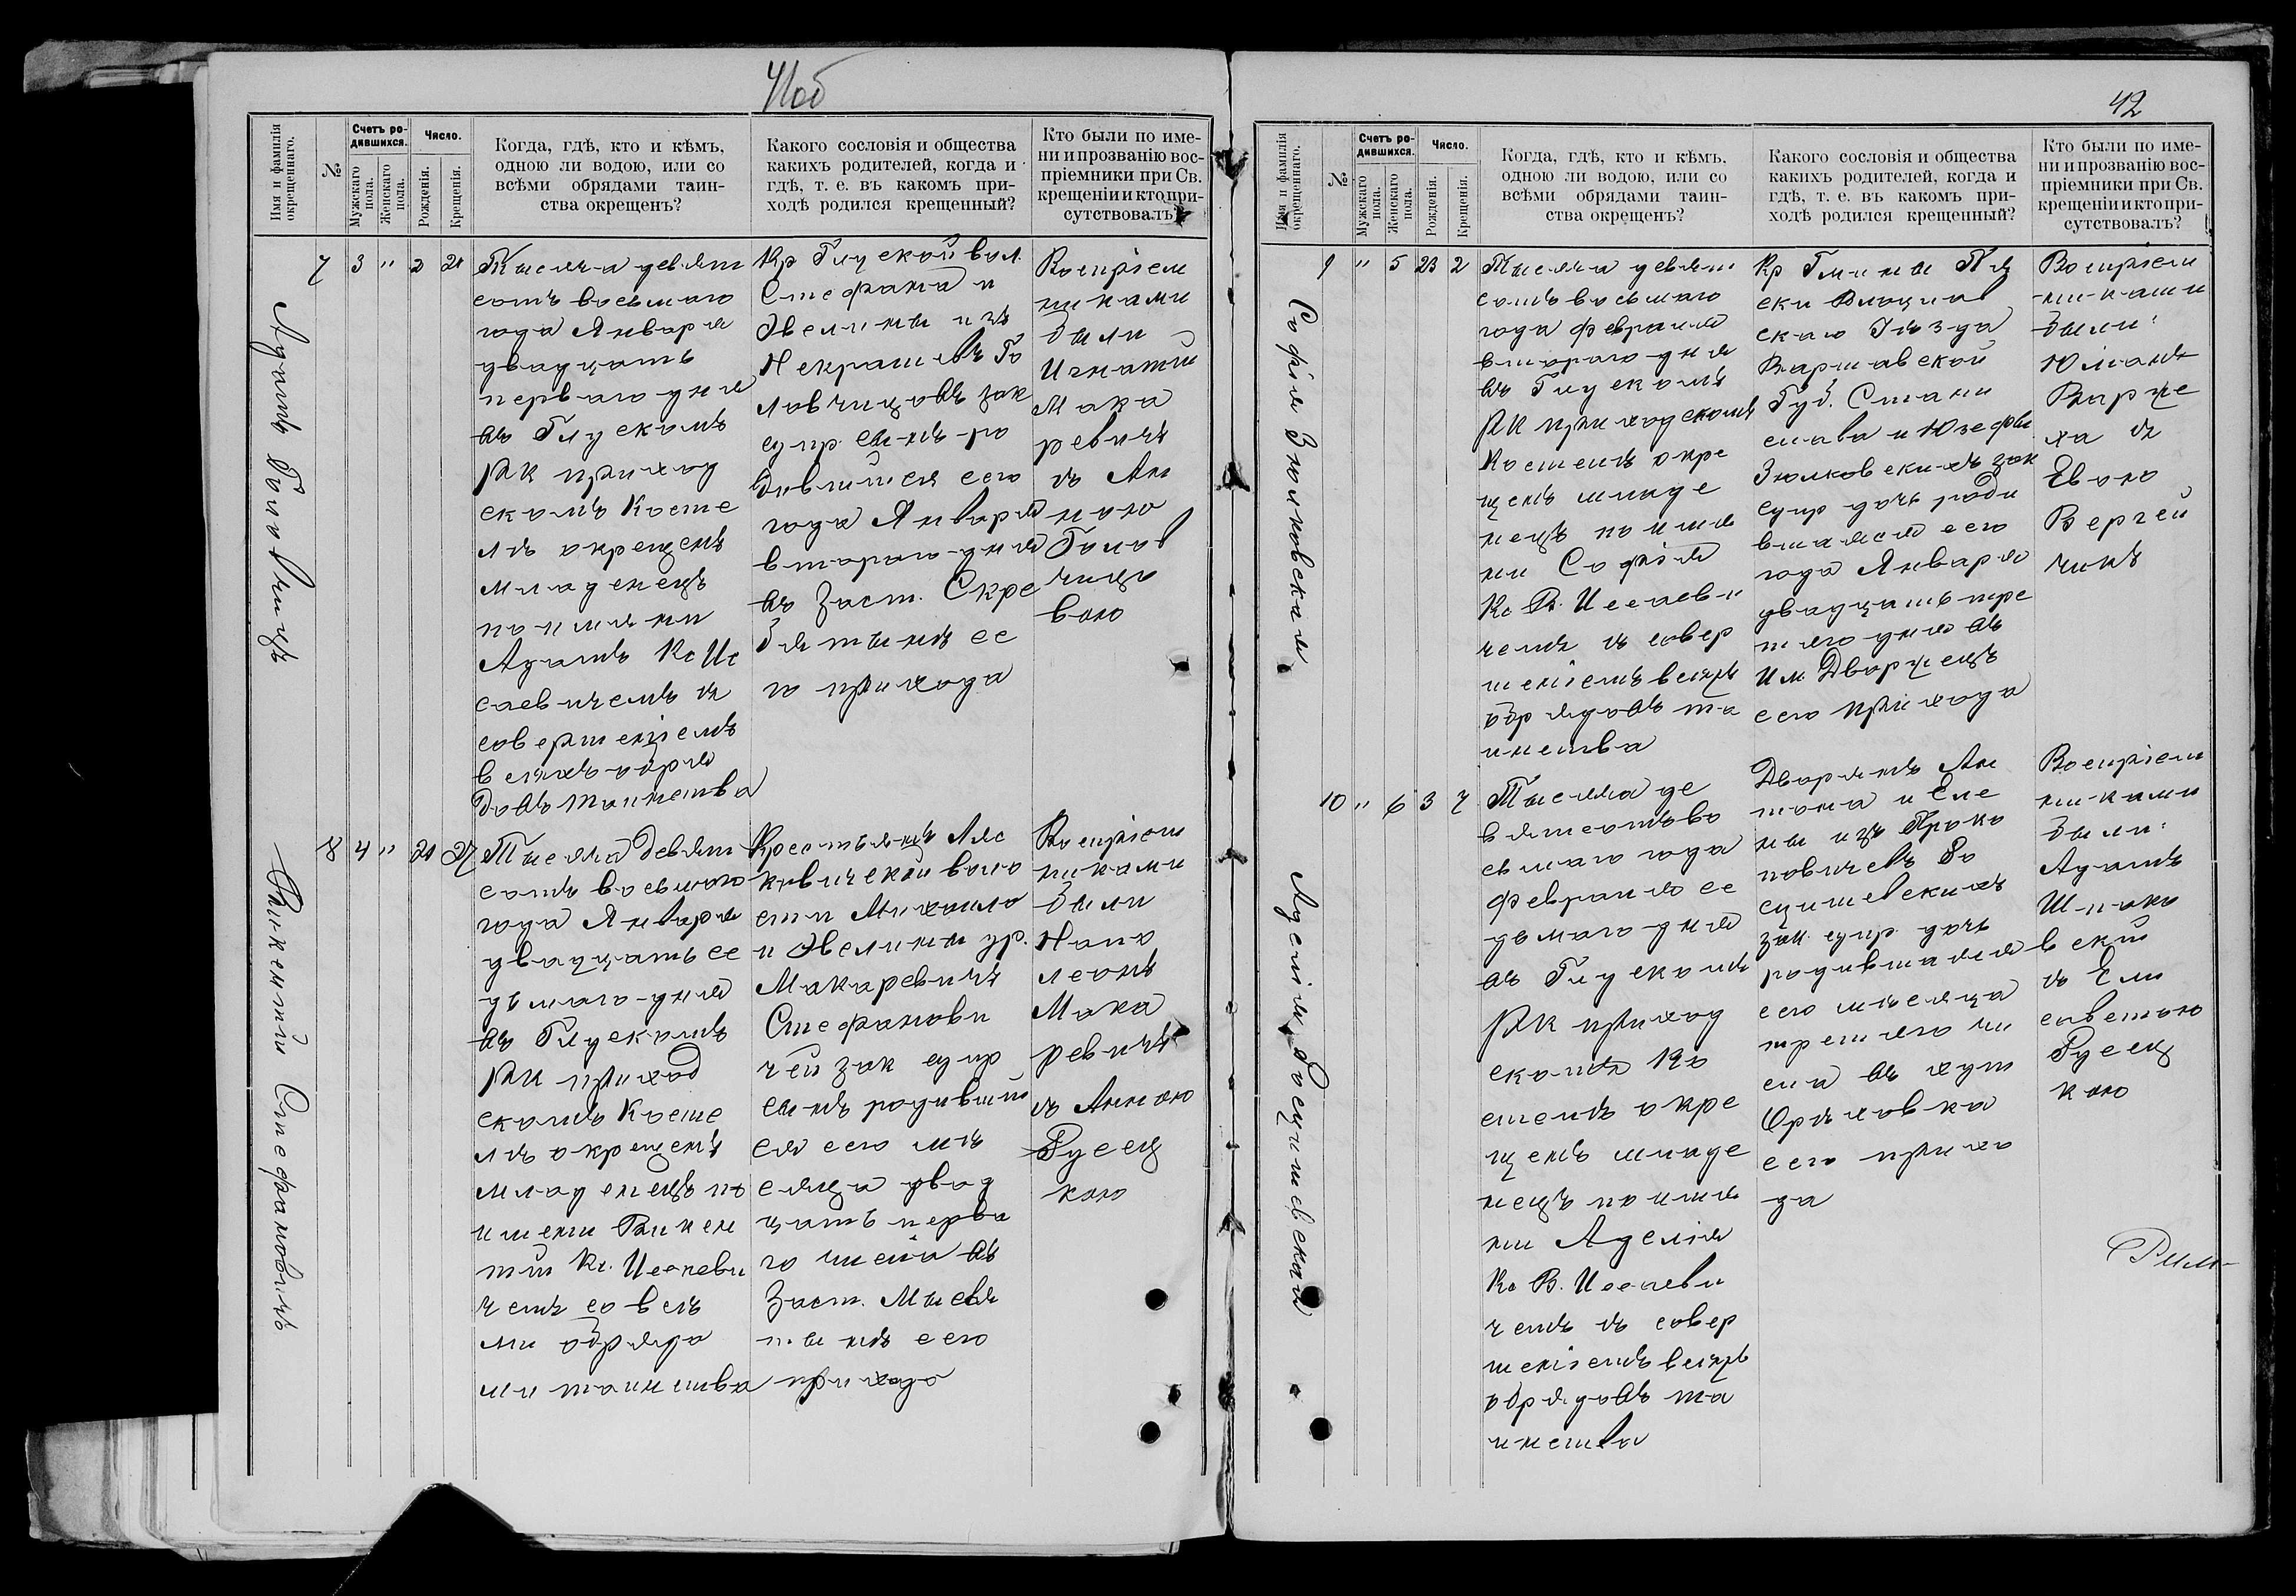 41об
Имя и фамилія окрещеннаго.
№
Счетъ родившихся.
Мужскаго пола.
Женскаго пола.
Число.
Рожденія.
Крещенія.
Когда, гдѣ, кто и кѣмъ,
одною ли водою, или со
всѣми обрядами таин-
ства окрещенъ?
Какого сословія и общества
какихъ родителей, когда и
гдѣ, т. е. въ какомъ при-
ходѣ родился крещенный?
Кто были по име-
ни и прозванію вос-
пріемники при Св.
крещеніи и кто при-
сутствовалъ?
Адамъ Головчицъ
7 3 " 2 21
Тысяча девят
сотъ восьмаго
года Января
двадцать
перваго дня
въ Глускомъ
РК приход
скомъ Косте
лѣ окрещенъ
младенецъ
по имени
Адамъ Кс Ис
саевичемъ съ
совершеніемъ
всѣхъ обря
довъ таинства
Кр Глуской вол.
Стефана и
Эвелины изъ
Некрашевъ Го
ловчицовъ зак
супр. сынъ ро
дившійся сего
года Января
втораго дня
въ Заст. Скре
бятынѣ се
го прихода
Воспріем
никами
были
Игнатій
Мака
ревичъ
съ Ан
ною
Голов
чицо
вою
Викентій Стефановичъ
8 4 " 21 27
Тысяча девят
сотъ восьмаго
года Января
двадцать се
дьмаго дня
въ Глускомъ
РК приход
скомъ Косте
лѣ окрещенъ
младенецъ по
имени Викен
тій Кс. Иссаеви
чемъ со всѣ
ми обряда
ми таинства
Крестьянъ Ляс
ковичской воло
сти Михаила
и Эвелины ур.
Макаревичъ
Стефанови
чей зак супр
сынъ родивший
ся сего мѣ
сяца двад
цать перва
го числа въ
Заст. Мысля
тынѣ сего
прихода
Воспріем
никами
были
Напо
леонъ
Мака
ревичъ
съ Анною
Русец
кою
42
Имя и фамилія окрещеннаго.
№
Счетъ родившихся.
Мужскаго пола.
Женскаго пола.
Число.
Рожденія.
Крещенія.
Когда, гдѣ, кто и кѣмъ,
одною ли водою, или со
всѣми обрядами таин-
ства окрещенъ?
Какого сословія и общества
какихъ родителей, когда и
гдѣ, т. е. въ какомъ при-
ходѣ родился крещенный?
Кто были по име-
ни и прозванію вос-
пріемники при Св.
крещеніи и кто при-
сутствовалъ?
Софія Зюлковская
9 " 5 23 2
Тысяча девят
сотъ восьмаго
года февраля
втораго дня
въ Глускомъ
РК приходскомъ
Костелѣ окре
щенъ младе
нецъ по име
ни Софія
Кс В. Иссаеви
чемъ съ совер
шеніемъ всѣхъ
обрядовъ та
инства
Кр Гмины Пя
ски Влоцлав
скаго Уѣзда
Варшавской
Губ. Стани
слава и Юзефы
Зюлковскихъ зак
супр дочь роди
вшаяся сего
года Января
двадцать тре
тяго дня въ
Им Дворжецъ
сего прихода
Воспріем
никами
были:
Юліанъ
Варже
ха съ
Евою
Вергей
чикъ
Аделія Росцишевская
10 " 6 3 7
Тысяча де
вятсотъ во
сьмаго года
февраля се
дьмаго дня
въ Глускомъ
РК приход
скомъ Ко
стелѣ окре
щенъ младе
нецъ по име
ни Аделія
Кс В. Иссаеви
чемъ съ совер
шеніемъ всѣхъ
обрядовъ та
инства
Дворянъ Ан
тона и Еле
ны изъ Проко
повичевъ Ро
сцишевскихъ
зак. супр. дочь
родившаяся
сего мѣсяца
третяго чи
сла въ хут
Орѣховка
сего прихо
да
Воспріем
никами
были:
Адамъ
Шпако
вскій
съ Ели
саветою
Русец
кою